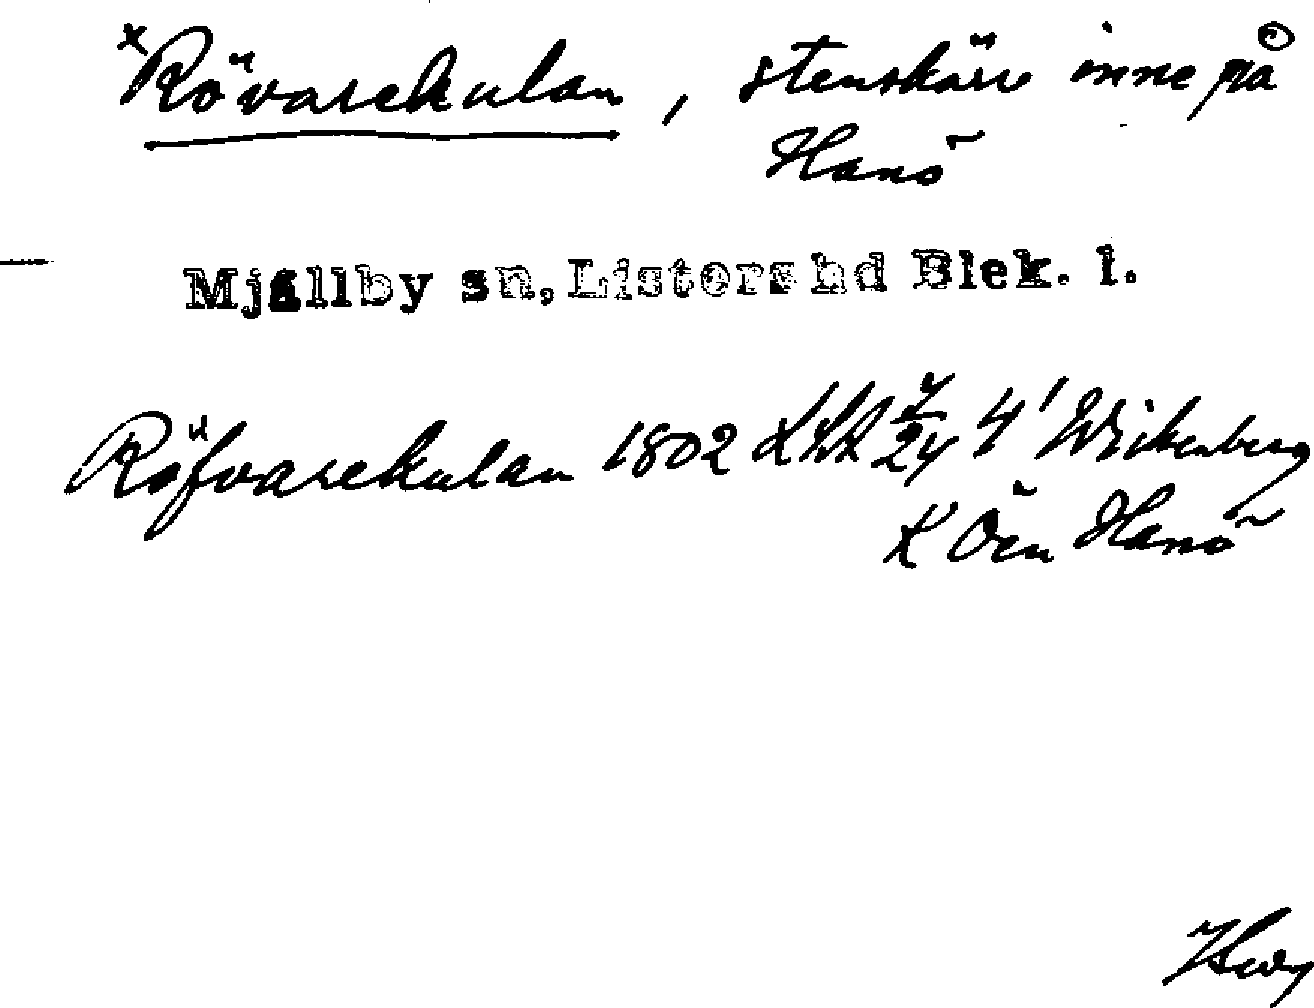 x Rövarekulan, stenskärr inne på
Hanö
Mjällby sn, Listers hd Blek. l.
Röfvarekulan 1802 4' Wikenberg
K Ön Hanö